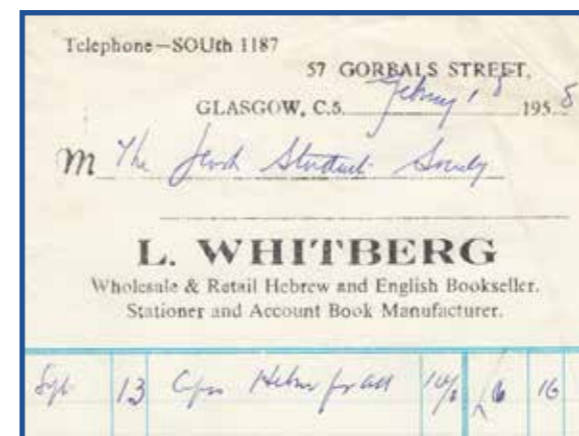 Telephone—SOUth 1187
57 GORBALS STREET,
GLASGOW, C.5. 195 8
M The Student Society
L. WHITBERG
Wholesale & Retail Hebrew and English Bookseller.
Stationer and Account Book Manufacturer.
Sept 13 Hebrew for all 10/6 6 16